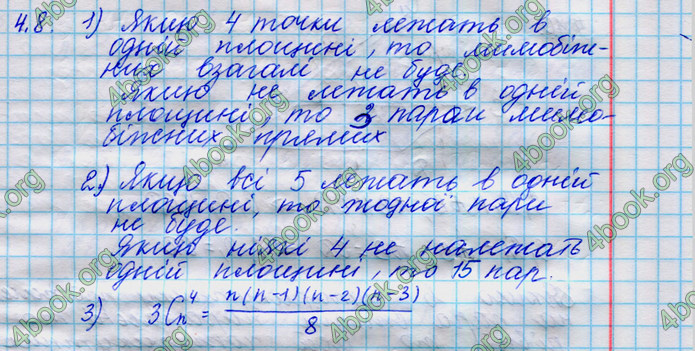 4.8. 1) Якщо 4 точки лежать в
одній площині, то мимобіж-
них взагалі не буде.
Якщо не лежать в одній
площині, то 3 пари мимо-
біжних прямих
2) Якщо всі 5 лежать в одній
площині, то жодної пари
не буде.
Якщо ніякі 4 не належать
одній площині, то 15 пар.
3) 3C_n^4 = n(n-1)(n-2)(n-3) / 8
4book.org